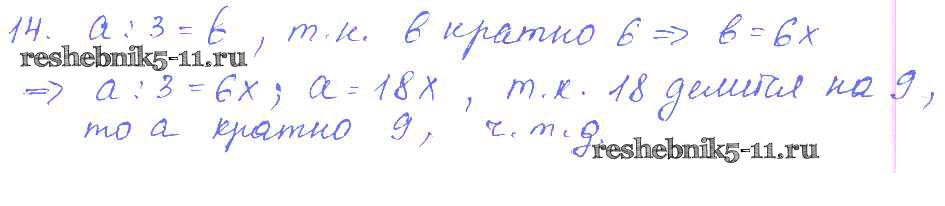 14. а : 3 = в, т.к. в кратно 6 => в = 6х
reshebnik5-11.ru
=> а : 3 = 6х; а = 18х, т.к. 18 делится на 9,
то а кратно 9, ч.т.д.
reshebnik5-11.ru